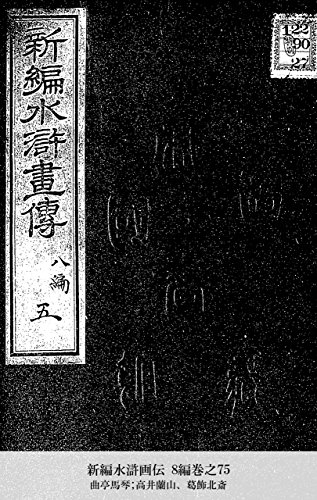 新編水滸畫傳
八編
五
122
90
27
新編水滸画伝 8編巻之75
曲亭馬琴;高井蘭山、葛飾北斎